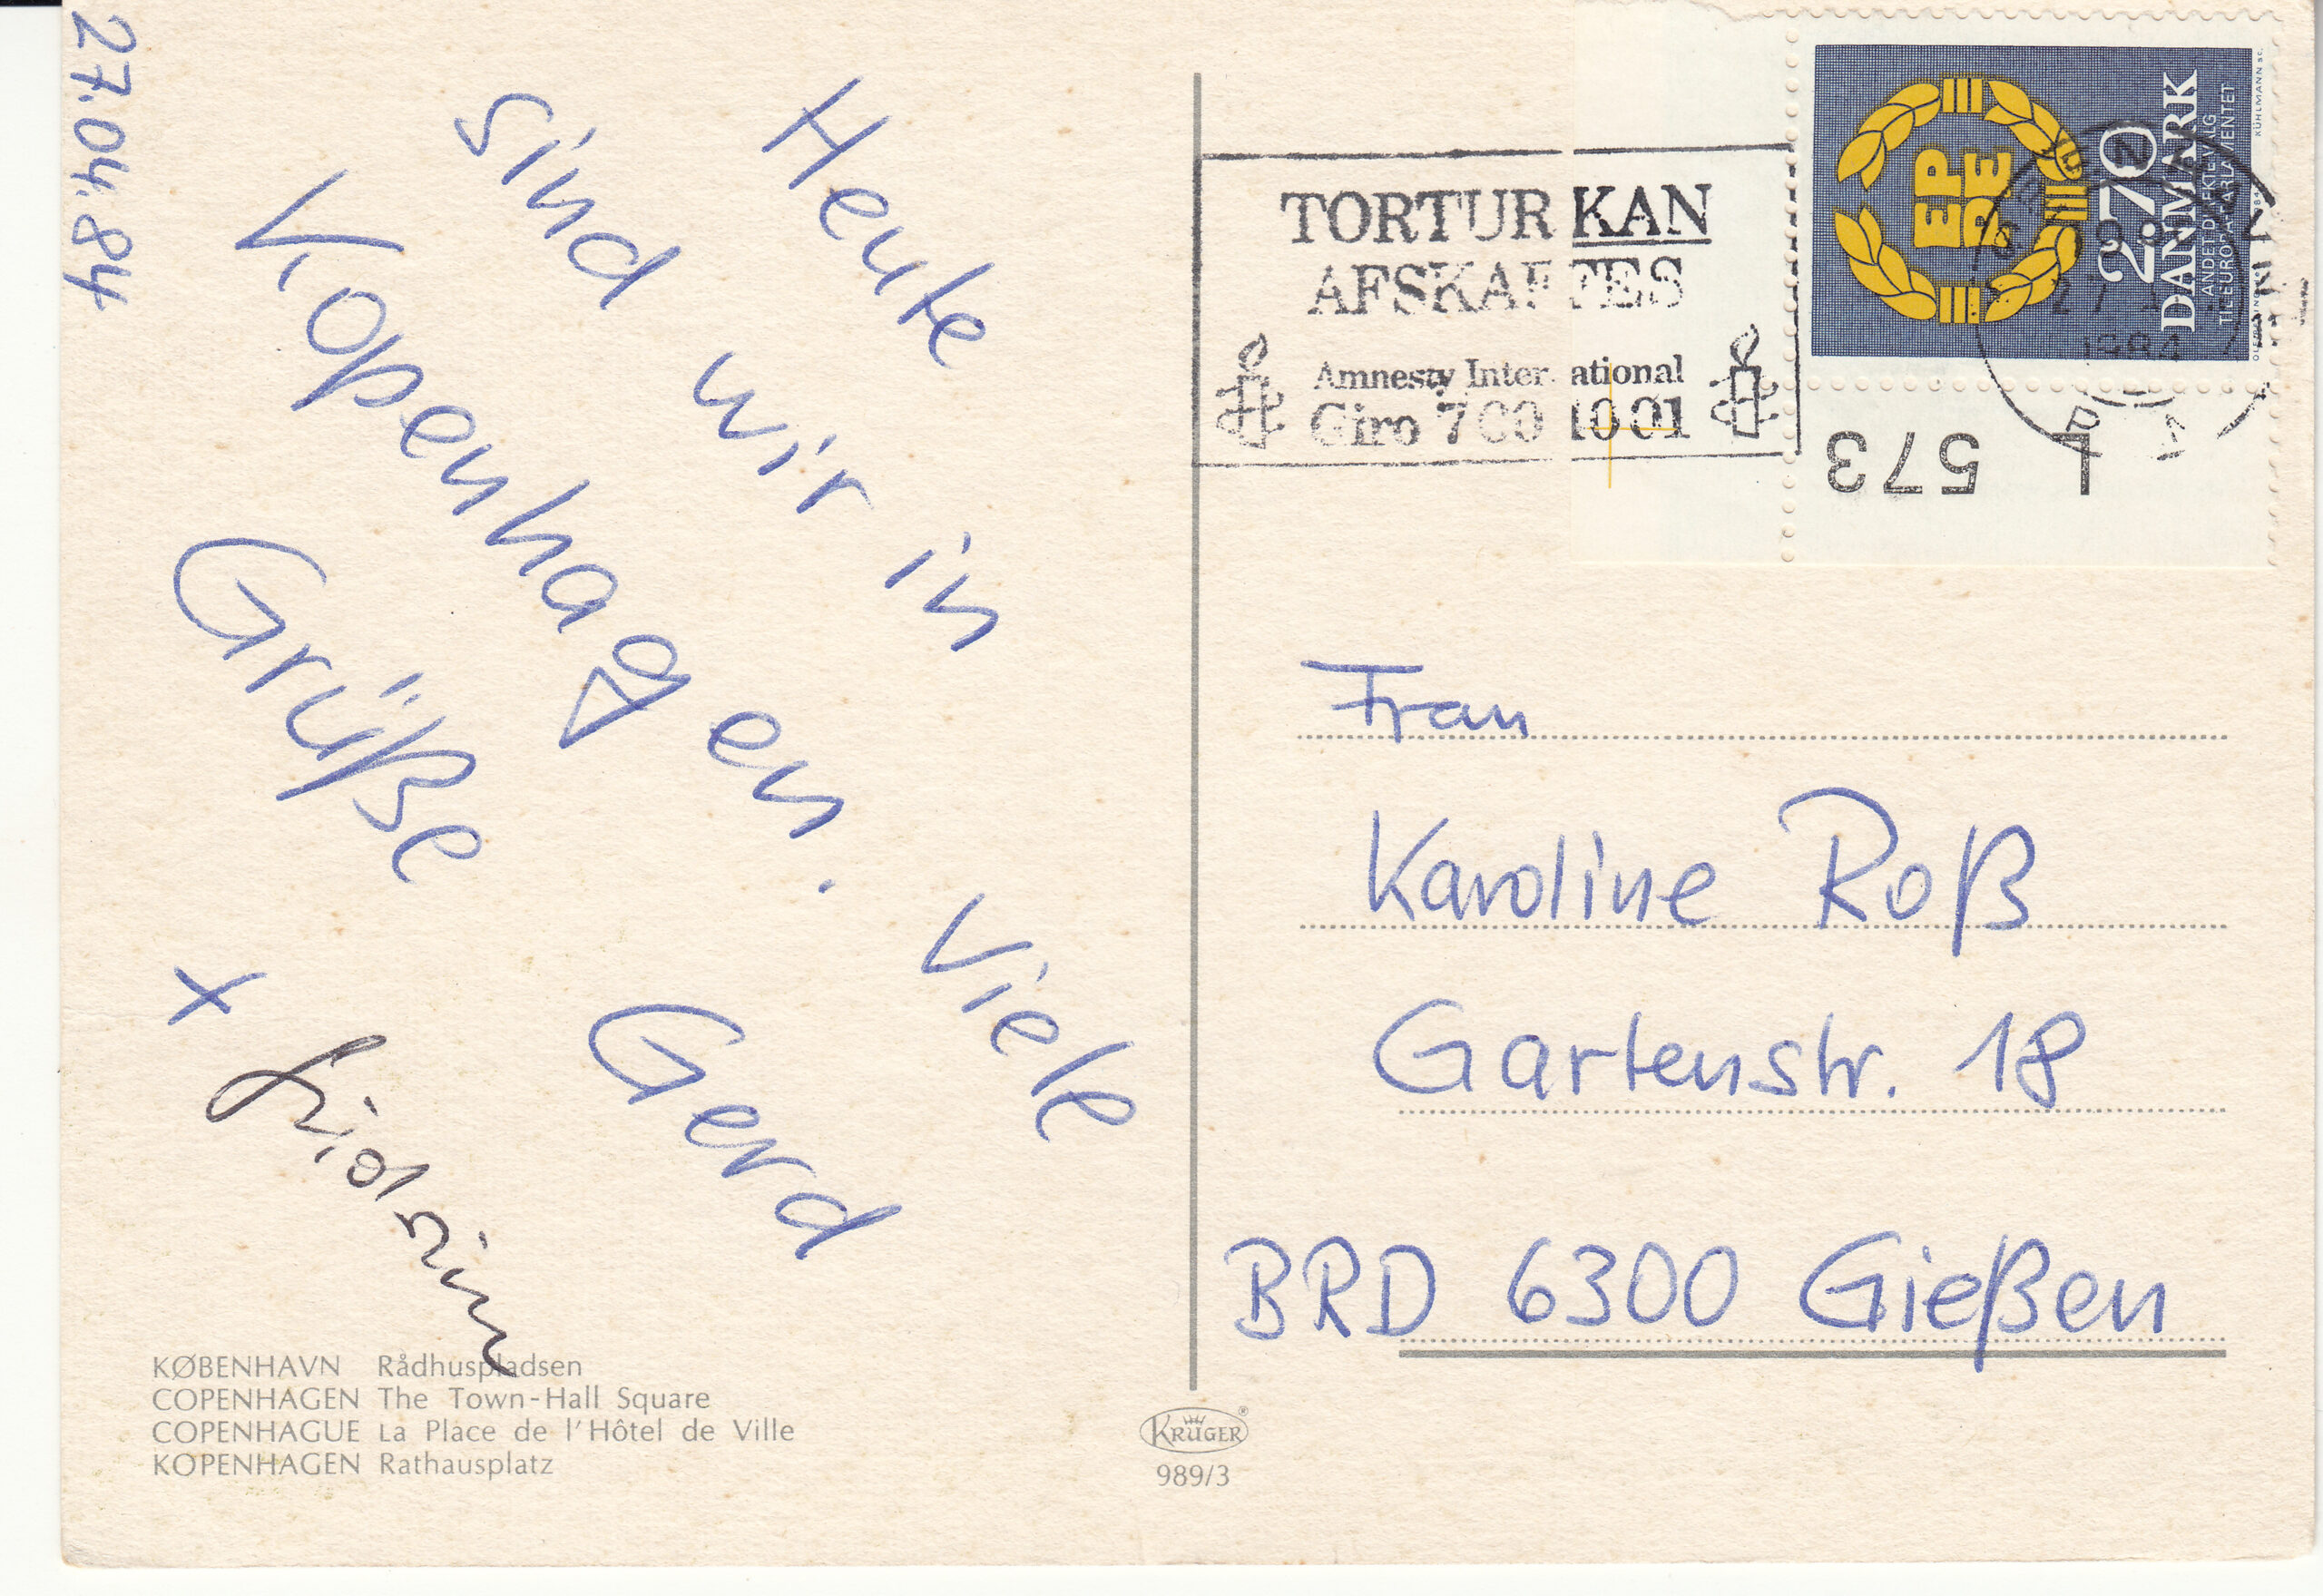 27.04.84
Heute
sind wir in
Kopenhagen. Viele
Grüße Gerd
x
TORTUR KAN
AFSKAFFES
Amnesty International
Giro 7 00 10 01
EP
DE
270
DANMARK
ANDET DIREKTE VALG
TIL EUROPA-PARLAMENTET
KÜHLMANN SC.
1984
573 L
Frau
Karoline Roß
Gartenstr. 18
BRD 6300 Gießen
KØBENHAVN Rådhuspladsen
COPENHAGEN The Town-Hall Square
COPENHAGUE La Place de l'Hôtel de Ville
KOPENHAGEN Rathausplatz
KRÜGER®
989/3